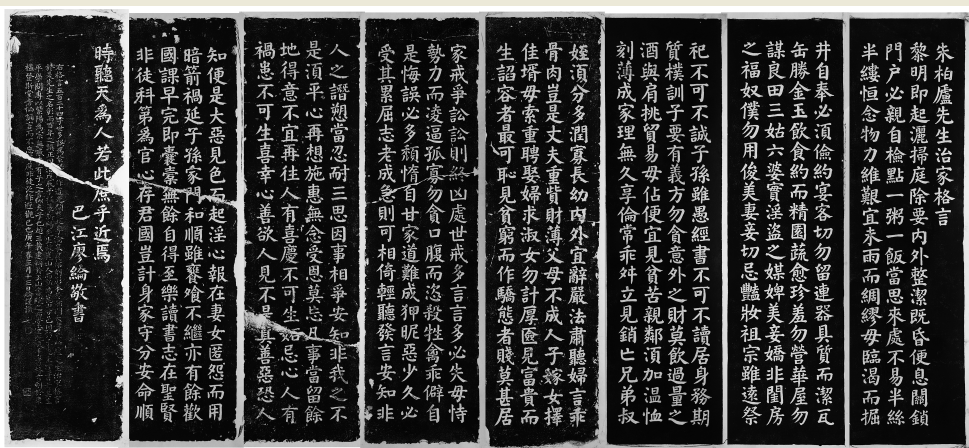 朱柏廬先生治家格言
黎明即起灑掃庭除要内外整潔既昏便息關鎖
門户必親自檢點一粥一飯當思來處不易半絲
半縷恒念物力維艱宜未雨而綢繆毋臨渴而掘
井自奉必須儉約宴客切勿留連器具質而潔瓦
缶勝金玉飲食約而精園蔬愈珍羞勿營華屋勿
謀良田三姑六婆實淫盜之媒婢美妾嬌非閨房
之福奴僕勿用俊美妻妾切忌豔妝祖宗雖遠祭
祀不可不誠子孫雖愚經書不可不讀居身務期
質樸訓子要有義方勿貪意外之財莫飲過量之
酒與肩挑貿易毋佔便宜見貧苦親鄰須加溫恤
刻薄成家理無久享倫常乖舛立見銷亡兄弟叔
姪須分多潤寡長幼内外宜辭嚴法肅聽婦言乖
骨肉豈是丈夫重貲財薄父母不成人子嫁女擇
佳壻毋索重聘娶婦求淑女勿計厚匳見富貴而
生諂容者最可恥見貧窮而作驕態者賤莫甚居
家戒爭訟訟則終凶處世戒多言言多必失毋恃
勢力而凌逼孤寡勿貪口腹而恣殺牲禽乖僻自
是悔誤必多頹惰自甘家道難成狎昵惡少久必
受其累屈志老成急則可相倚輕聽發言安知非
人之譖愬當忍耐三思因事相爭安知非我之不
是須平心再想施惠無念受恩莫忘凡事當留餘
地得意不宜再往人有喜慶不可生妬忌心人有
禍患不可生喜幸心善欲人見不是真善惡恐人
知便是大惡見色而起淫心報在妻女匿怨而用
暗箭禍延子孫家門和順雖饔飱不繼亦有餘歡
國課早完即囊橐無餘自得至樂讀書志在聖賢
非徒科第為官心存君國豈計身家守分安命順
時聽天為人若此庶乎近焉
巴江廖綸敬書